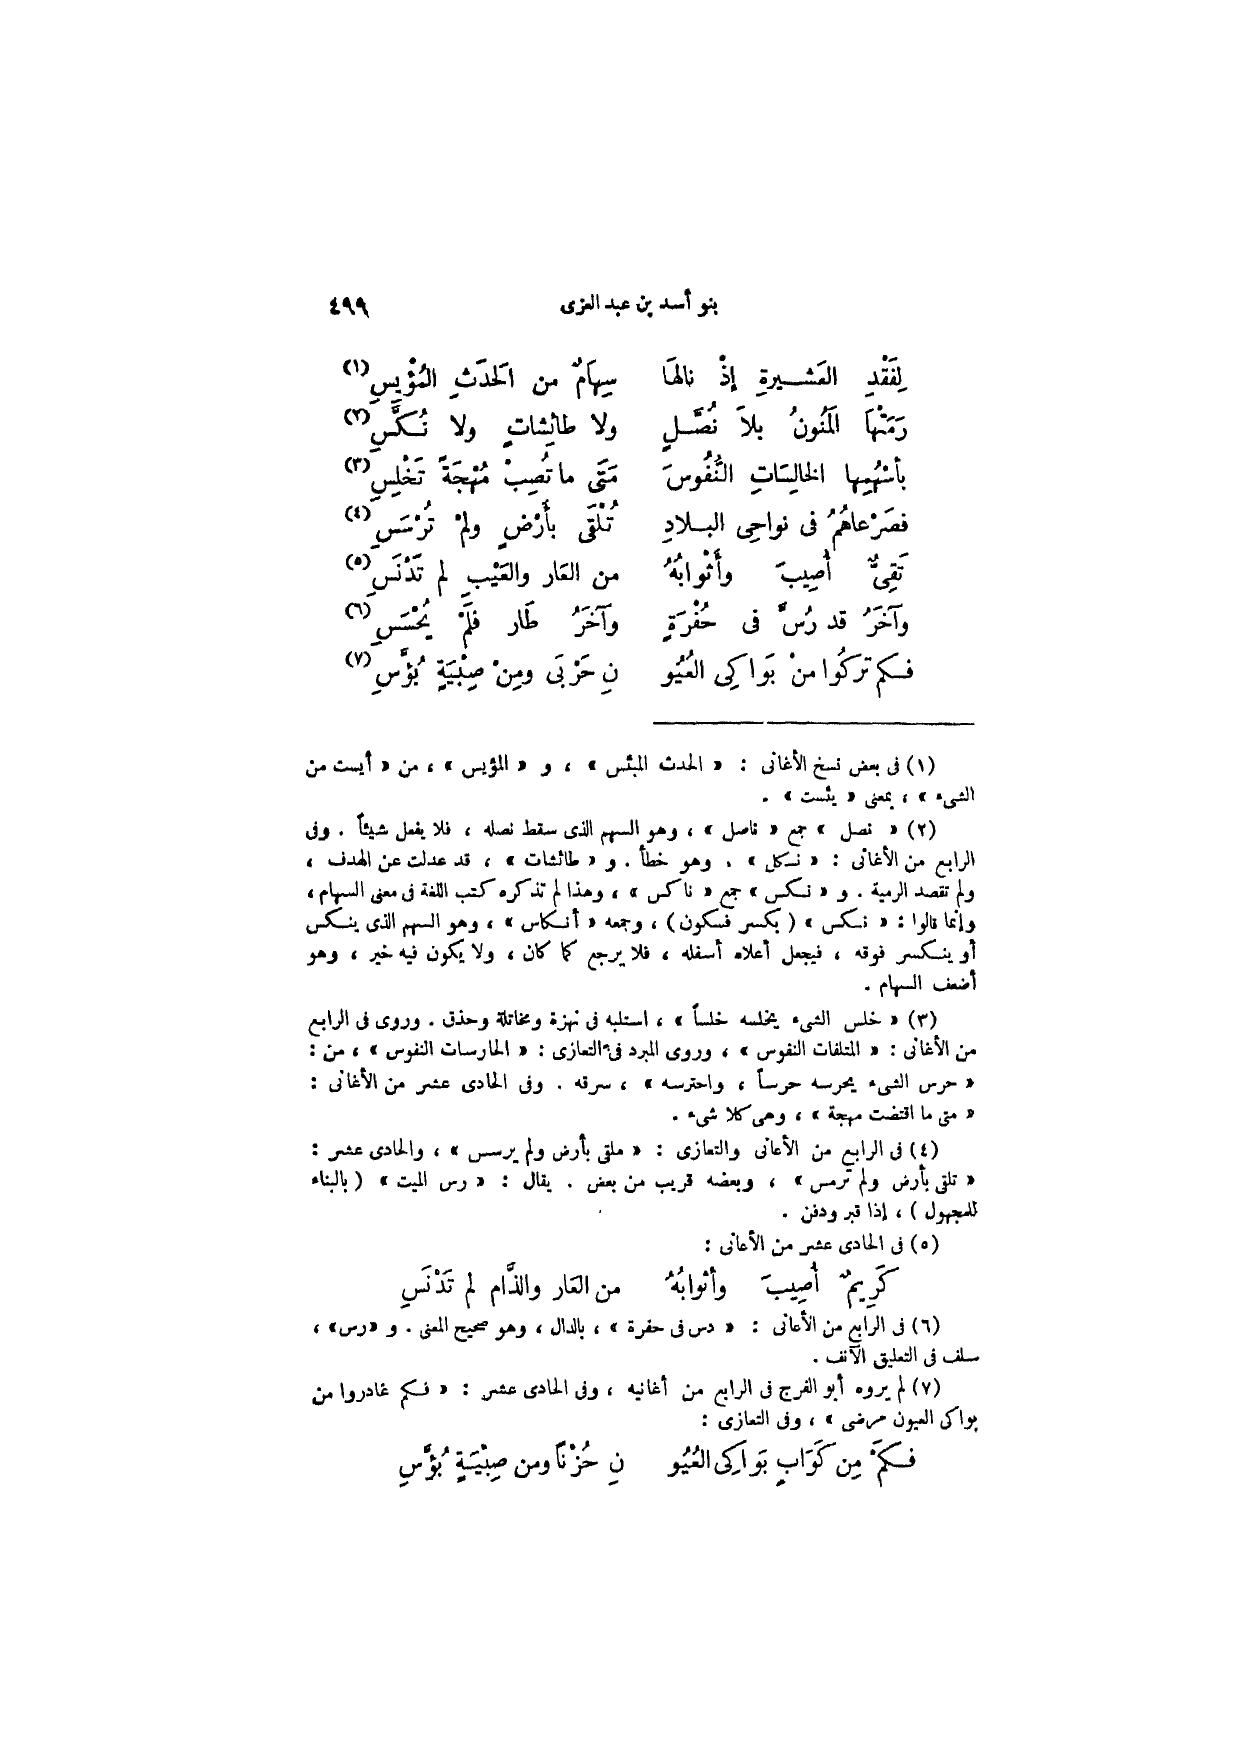 بنو أسد بن عبد العزى ٤٩٩
لِفَقْدِ العَشـيرةِ إذْ نالهَا سِهامٌ من الحَدَثِ المُؤْيِسِ (١)
رَمَتْها المَنُونُ بلاَ نُصَّلٍ ولا طائِشاتٍ ولا نُكَّسِ (٢)
بأسْهُمِها الخالِسَاتِ النُّفُوسَ مَتَى ما تُصِبْ مُهْجَةً تَخْلِسِ (٣)
فصَرْعاهُمُ فى نواحِى البلادِ تُلْقَى بأَرْضٍ ولمْ تُرْسَسِ (٤)
تَقِىٌّ أُصِيبَ وأَثْوابُهُ من العَار والعَيْبِ لم تَدْنَسِ (٥)
وآخَرُ قد رُسَّ فى حُفْرَةٍ وآخَرُ طَار فلَمْ يُحْسَسِ (٦)
فكم تركُوا منْ بَواكِى العُيُو نِ حَرْبَى ومِنْ صِبْيَةٍ بُؤَّسِ (٧)
(١) فى بعض نسخ الأغانى : « الحدث المبئس » ، و « المؤيس » ، من « أيست من
الشىء » ، بمعنى « يئست » .
(٢) « نصل » جمع « ناصل » ، وهو السهم الذى سقط نصله ، فلا يفعل شيئاً . وفى
الرابع من الأغانى : « نكل » . وهو خطأ . و « طائشات » ، قد عدلت عن الهدف ،
ولم تقصد الرمية . و « نكس » جمع « ناكس » ، وهذا لم تذكره كتب اللغة فى معنى السهام ،
وإنما قالوا : « نكس » ( بكسر فسكون ) ، وجمعه « أنكاس » ، وهو السهم الذى ينكس
أو ينكسر فوقه ، فيجعل أعلاه أسفله ، فلا يرجع كما كان ، ولا يكون فيه خير ، وهو
أضعف السهام .
(٣) « خلس الشىء يخلسه خلساً » ، استلبه فى نهزة ومخاتلة وحذق . وروى فى الرابع
من الأغانى : « المتلفات النفوس » ، وروى المبرد فى التعازى : « الحارسات النفوس » ، من :
« حرس الشىء يحرسه حرساً ، واحترسه » ، سرقه . وفى الحادى عشر من الأغانى :
« متى ما اقتضت مهجة » ، وهى كلا شىء .
(٤) فى الرابع من الأغانى والتعازى : « ملقى بأرض ولم يرسس » ، والحادى عشر :
« تلقى بأرض ولم ترمس » ، وبعضه قريب من بعض . يقال : « رس الميت » ( بالبناء
للمجهول ) ، إذا قبر ودفن .
(٥) فى الحادى عشر من الأغانى :
كَرِيمٌ أُصِيبَ وأثوابُهُ من العَار والذَّام لم تَدْنَسِ
(٦) فى الرابع من الأغانى : « دس فى حفرة » ، بالدال ، وهو صحيح المعنى . و «رس» ،
سلف فى التعليق الآنف .
(٧) لم يروه أبو الفرج فى الرابع من أغانيه ، وفى الحادى عشر : « فكم غادروا من
بواكى العيون مرضى » ، وفى التعازى :
فكَمْ مِن كَوَابٍ بَوَاكِى العُيُو نِ حُزْناً ومن صِبْيَةٍ بُؤَّسِ